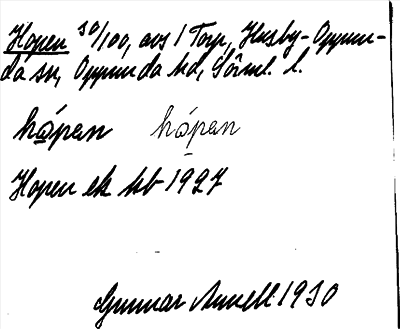 Hopen 30/100, avs 1 Torp, Husby-Oppun-
da sn, Oppunda hd, Sörml. l.
hópen hópen
Hopen ek kb 1927
Gunnar 1930